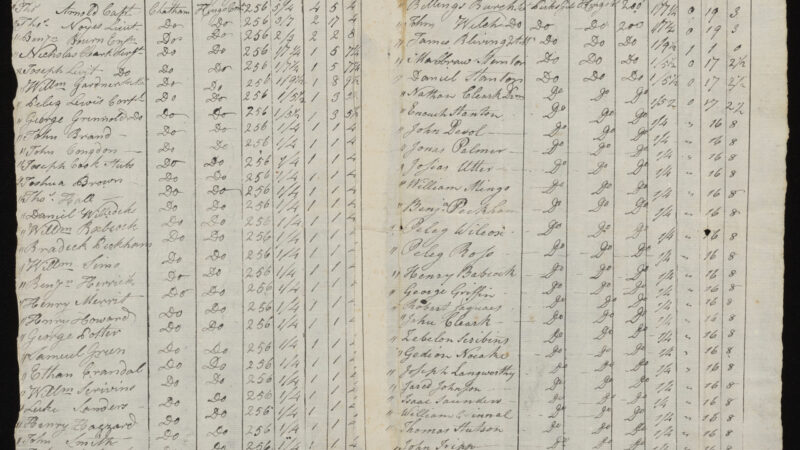 Thos Arnold Capt Chatham Hugo Cork 256 3/4 4 5 4
Thos Noyes Lieut Do Do 256 3/7 2 17 4
Benja Bourn Ens Do Do 256 2/3 2 2 8
Nicholas Clark Do Do 256 1/7 1/4 1 5
Joseph Do Do Do 256 1 5
Willm Gardner Do Do 256 1 8
Peleg Lewis Corpl Do Do 256 1 3
George Grinnold Do Do Do 256 1 3
John Brand Do Do 256 1/4 1 1 4
John Congdon Do Do 256 1/4 1 1 4
Joseph Cook Do Do 256 1/4 1 1 4
Joshua Brown Do Do 256 1/4 1 1 4
Thos Hall Do Do 256 1/4 1 1 4
Daniel Wilcock Do Do 256 1/4 1 1 4
Willm Babcock Do Do 256 1/4 1 1 4
Bradeck Peckham Do Do 256 1/4 1 1 4
Willm Sims Do Do 256 1/4 1 1 4
Benja Herrick Do Do 256 1/4 1 1 4
Henry Merrit Do Do 256 1/4 1 1 4
Henry Howard Do Do 256 1/4 1 1 4
George Potter Do Do 256 1/4 1 1 4
Samuel Green Do Do 256 1/4 1 1 4
Ethan Crandal Do Do 256 1/4 1 1 4
Willm Scrivins Do Do 256 1/4 1 1 4
Luke Sanders Do Do 256 1/4 1 1 4
Henry Hazzard Do Do 256 1/4 1 1 4
John Smith Do Do 256 1/4 1 1 4
Billings 200 1/7 1/4 0 19 3
John Welch Do Do Do 200 0 19 3
James Do Do 1 1 0
Stanton Do Do 0 17 2 1/2
Daniel Stanton Do Do 0 17 2 1/2
Nathan Cleark Do Do 0 17 2 1/2
Enouch Stanton Do Do
John Devol Do Do 1/4 " 16 8
Jones Palmer Do Do 1/4 " 16 8
Josias Utter Do Do 1/4 " 16 8
William Mingo Do Do 1/4 " 16 8
Benja Peckham Do Do 1/4 " 16 8
Peleg Wilcox Do Do 1/4 " 16 8
Peleg Ross Do Do 1/4 " 16 8
Henry Babcock Do Do 1/4 " 16 8
George Griffin Do Do 1/4 " 16 8
Robert Do Do 1/4 " 16 8
John Cleark Do Do 1/4 " 16 8
Zebelon Scribins Do Do 1/4 " 16 8
Gedion Do Do 1/4 " 16 8
Joseph Langworthy Do Do 1/4 " 16 8
Jared Johnson Do Do 1/4 " 16 8
Isaac Saunders Do Do 1/4 " 16 8
William Do Do 1/4 " 16 8
Thomas Hutson Do Do 1/4 " 16 8
John Tripp Do Do 1/4 " 16 8